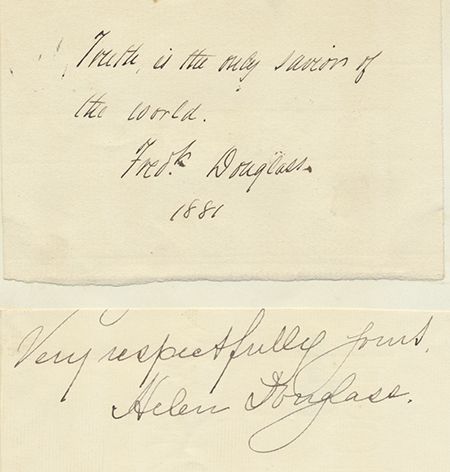 Truth, is the only savior of
the world.
Fredk. Douglass.
1881
Very respectfully yours,
Helen Douglass.